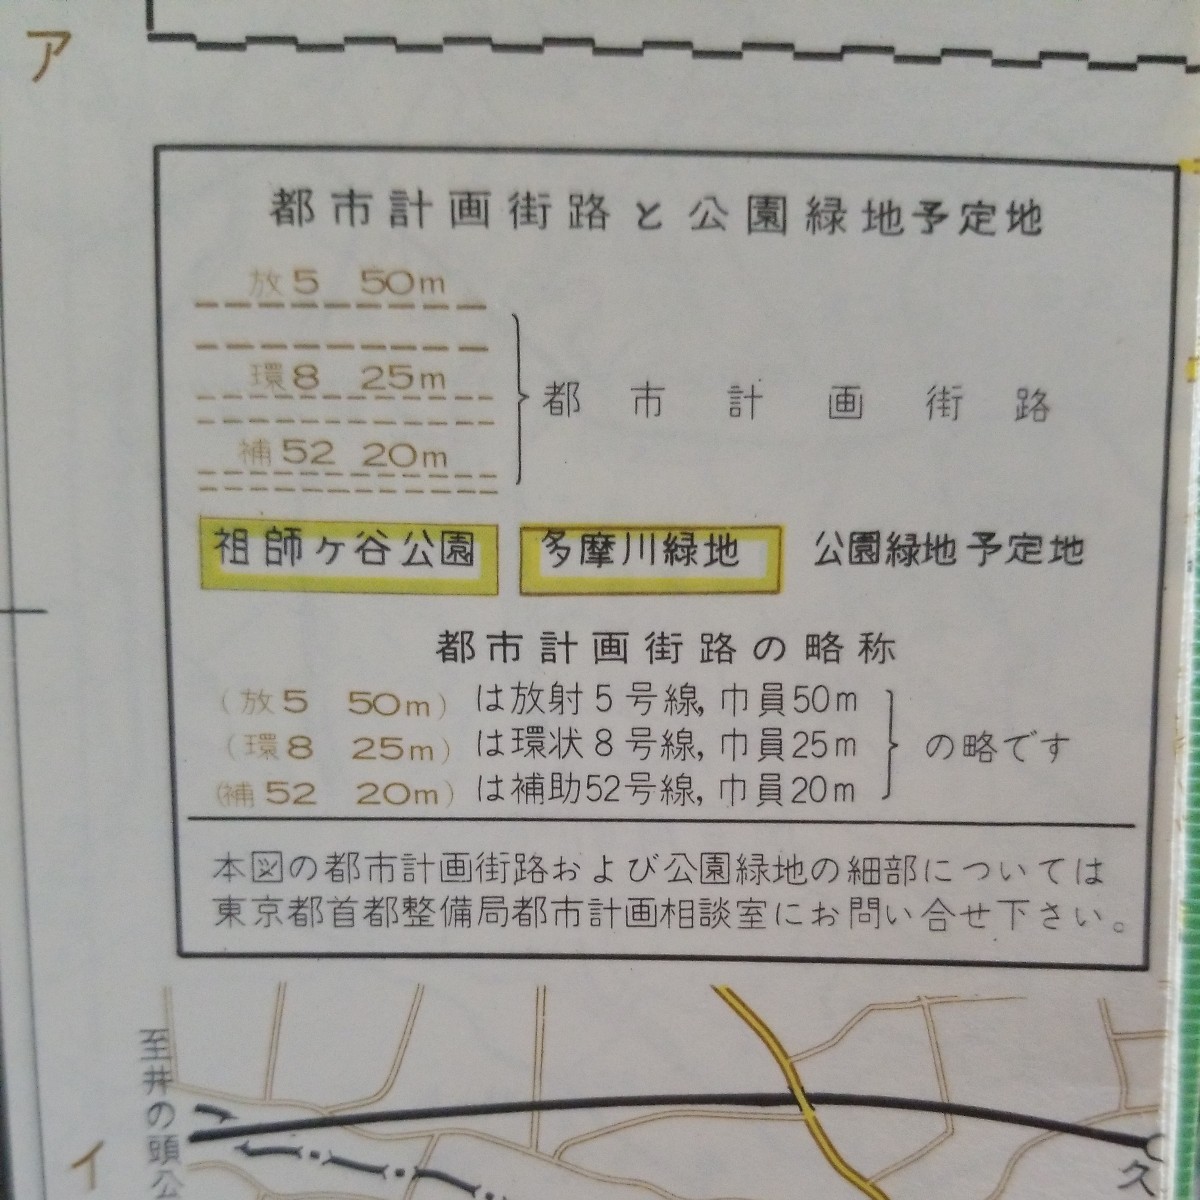 ア
都市計画街路と公園緑地予定地
放5 50m
環8 25m
都市計画街路
補52 20m
祖師ヶ谷公園 多摩川緑地 公園緑地予定地
都市計画街路の略称
(放5 50m) は放射5号線, 巾員50m
(環8 25m) は環状8号線, 巾員25m の略です
(補52 20m) は補助52号線, 巾員20m
本図の都市計画街路および公園緑地の細部については
東京都首都整備局都市計画相談室にお問い合せ下さい。
至井の頭公
イ
久